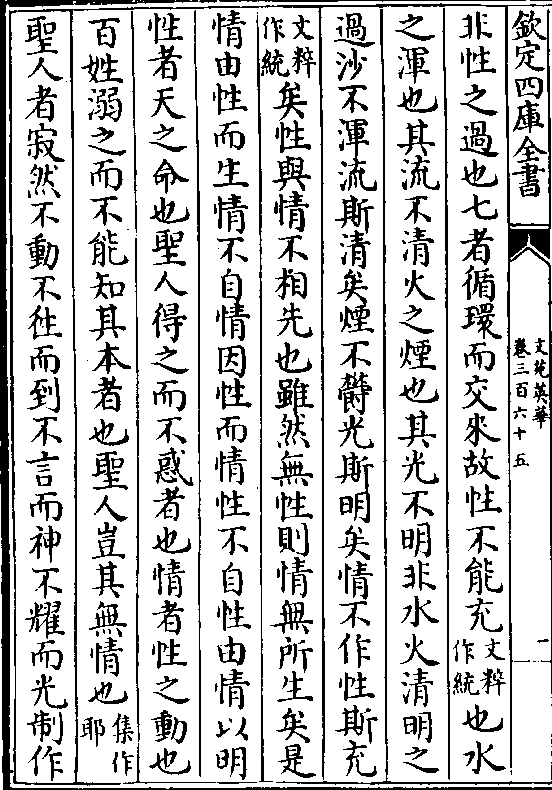 欽定四庫全書
文苑英華
卷三百六十五
一
非性之過也七者循環而交來故性不能充文粹作統也水
之渾也其流不清火之煙也其光不明非水火清明之
過沙不渾流斯清矣煙不欝光斯明矣情不作性斯充
文粹作統矣性與情不相先也雖然無性則情無所生矣是
情由性而生情不自情因性而情性不自性由情以明
性者天之命也聖人得之而不惑者也情者性之動也
百姓溺之而不能知其本者也聖人豈其無情也集作耶
聖人者寂然不動不徃而到不言而神不耀而光制作